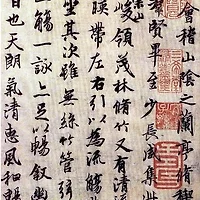 會稽山陰之蘭亭脩稧
賢畢至少長咸集
崇山
峻領茂林脩竹又有清
帶左右引以為流觴
坐其次雖無絲竹管弦
一觴一詠亦足以暢叙幽
日也天朗氣清惠風和暢